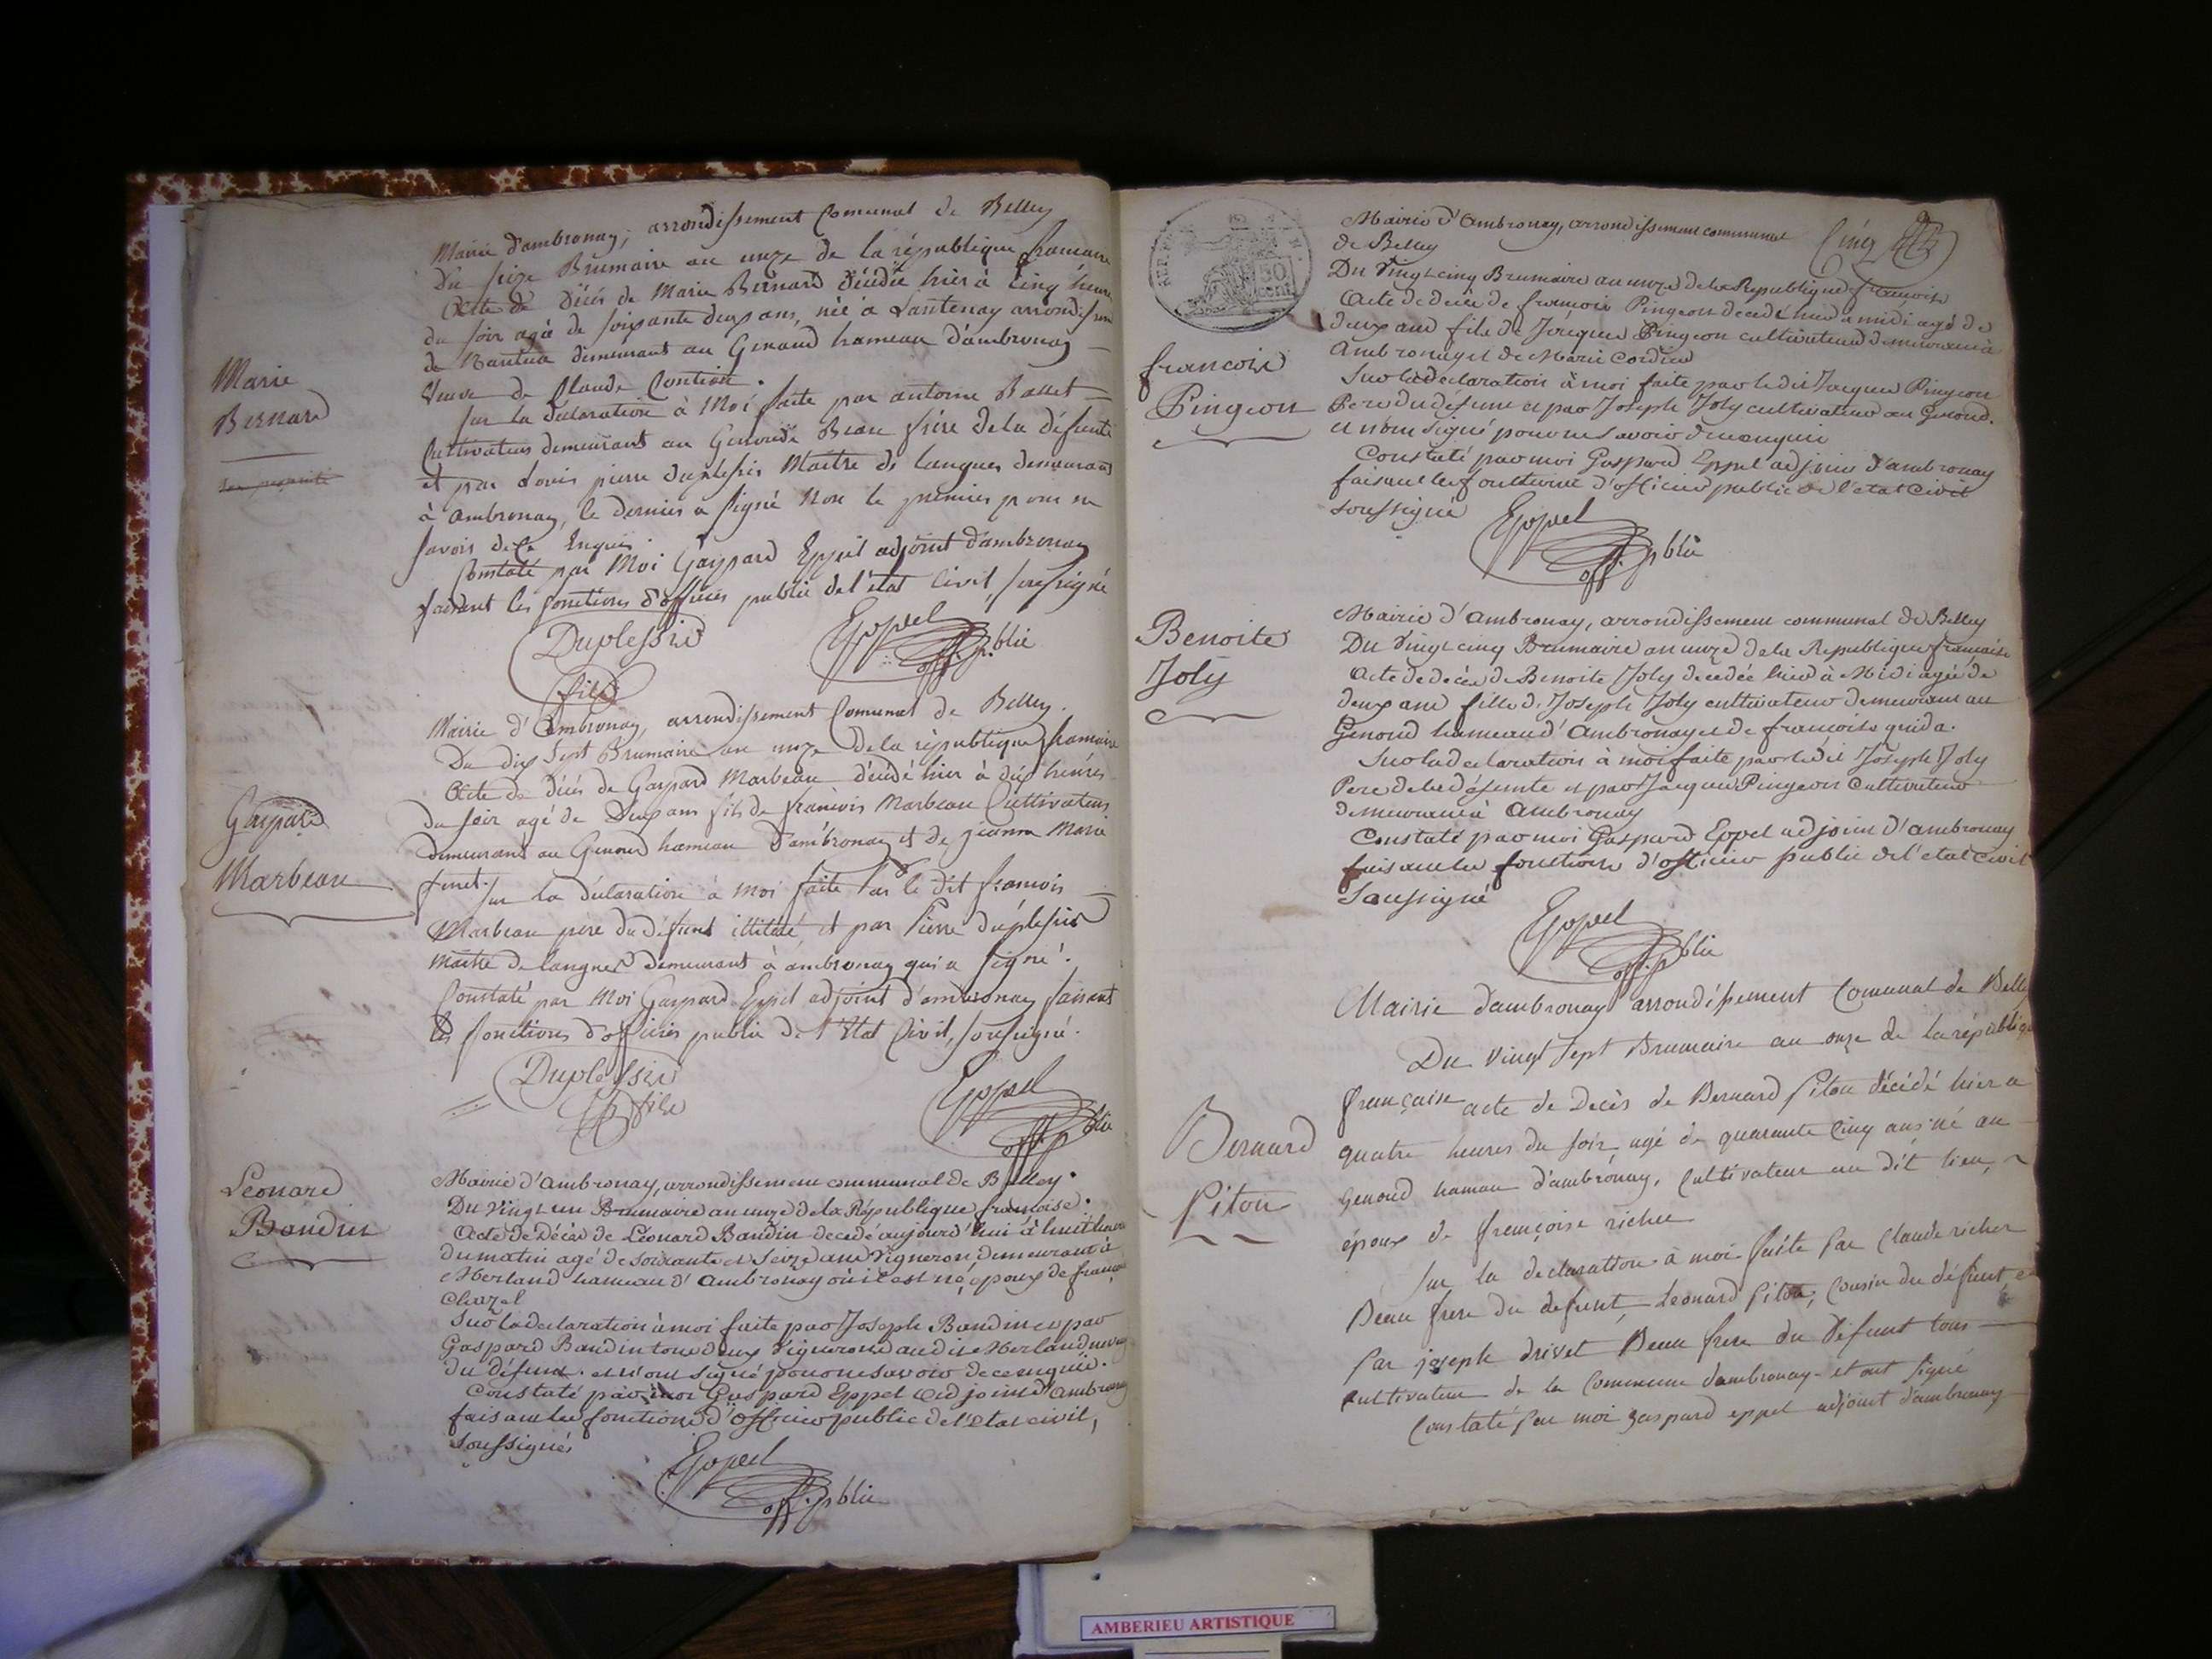 Mairie d'ambronay, arrondissement Comunal de Belley
Du seize Brumaire an onze de la république francaise
Acte de décés de Marie Bernard décédée hier à cinq heures
du soir agée de soixante deux ans, née à Lantenay arrondissem
de Nantua demeurant au Genoud hameau d'ambronay
Veuve de Claude
Marie
Bernard
Sur la déclaration à Moi faite par antoine Basset
Cultivateur demeurant au Genoud Beau frère de la défunte
et par Louis pierre duplessis Maitre de langues demeurant
à ambronay, le dernier a signé non le premier pour ne
savoir de ce Enquis
Constaté par Moi Gaspard Eppel adjoint d'ambronay
faisant les fonctions d'officier public de l'état Civil, soussigné
Duplessis
fils
Eppel
off. pblic
Mairie d'Ambronay, arrondissement Comunal de Belley.
Du dix sept Brumaire an onze de la république francaise
Acte de décés de Gaspard Marbeau décédé hier à dix heures
du soir agé de deux ans fils de françois Marbeau Cultivateur
demeurant au Genoud hameau d'ambronay et de jeanne Marie
Gaspard
Marbeau
Sur la déclaration à moi faite par le dit françois
Marbeau pere du défunt illitéré, et par Pierre duplessis
maitre de langues demeurant à ambronay qui a signé.
Constaté par Moi Gaspard Eppel adjoint d'ambronay faisant
les fonctions d'officier public de l'Etat Civil, soussigné.
Duplessis
fils
Eppel
off. pblic
Léonard
Baudin
Mairie d'Ambronay, arrondissement communal de Belley.
Du Vingt un Brumaire an onze de la République françoise.
Acte de Décès de Léonard Baudin decedé aujourd'hui à huit heures
du matin agé de soixante et seize ans Vigneron, demeurant à
Merland hameau d'Ambronay où il est né, époux de franço
Chazel
Sur la declaration à moi faite par Joseph Baudin et par
Gaspard Baudin tous deux Vignerons au dit Merland neveu
du défunt. et n'ont signé pour ne savoir de ce enquis.
Constaté par moi Gaspard Eppel adjoint d'ambronay
faisant les fonctions d'officier public de l'etat civil,
soussignés
Eppel
off. pblic
Cinq
50
cent.
Mairie d'Ambronay, arrondissement communal
de Belley
Du Vingt cinq Brumaire an onze de la Republique françoise
Acte de decès de françois Pingeon decedé hier à midi agé de
deux ans fils de Jacques Pingeon cultivateur demeurant à
Ambronay et de Marie Cordier
francois
Pingeon
Sur la déclaration à moi faite par le dit Jacques Pingeon
Pere du defunt et par Joseph Joly cultivateur au Genoud.
et n'ont signé pour ne savoir de ce enquis
Constaté par moi Gaspard Eppel adjoint d'ambronay
faisant les fonctions d'officier public de l'etat Civil
soussigné
Eppel
off. pblic
Benoite
Joly
Mairie d'Ambronay, arrondissement communal de Belley
Du Vingt cinq Brumaire an onze de la Republique francaise
Acte de décès de Benoite Joly decedée hier à Midi agée de
deux ans fille de Joseph Joly cultivateur demeurant au
Genoud hameau d'Ambronay et de francoise guida.
Sur la declaration à moi faite par le dit Joseph Joly
Pere de la défunte et par Jacques Pingeon Cultivateur
demeurant à Ambronay
Constaté par moi Gaspard Eppel adjoint d'ambronay
faisant les fonctions d'officier public de l'etat Civil
Soussigné
Eppel
off. pblic
Mairie d'ambronay arrondissement Comunal de Belley
Du vingt sept Brumaire an onze de la républiqu
française acte de Decès de Bernard Piton décédé hier a
quatre heures du soir agé de quarante cinq ans né au
Genoud hameau d'ambronay, Cultivateur au dit lieu,
époux de françoise richer
Bernard
Piton
Sur la declaration à moi faite par Claude richer
Beau frere du defunt, Leonard Piton, Cousin du défunt, et
Par joseph drivet Beau frere du défunt tous
cultivateur de la Commune d'ambronay et ont signé
Constaté par moi gaspard eppel adjoint d'ambronay
AMBERIEU ARTISTIQUE